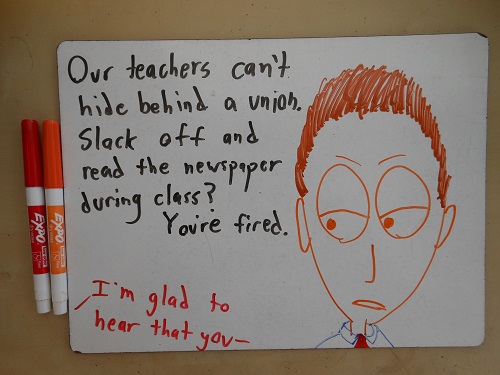 Our teachers can't
hide behind a union.
Slack off and
read the newspaper
during class?
You're fired.
I'm glad to
hear that you—
EXPO
EXPO